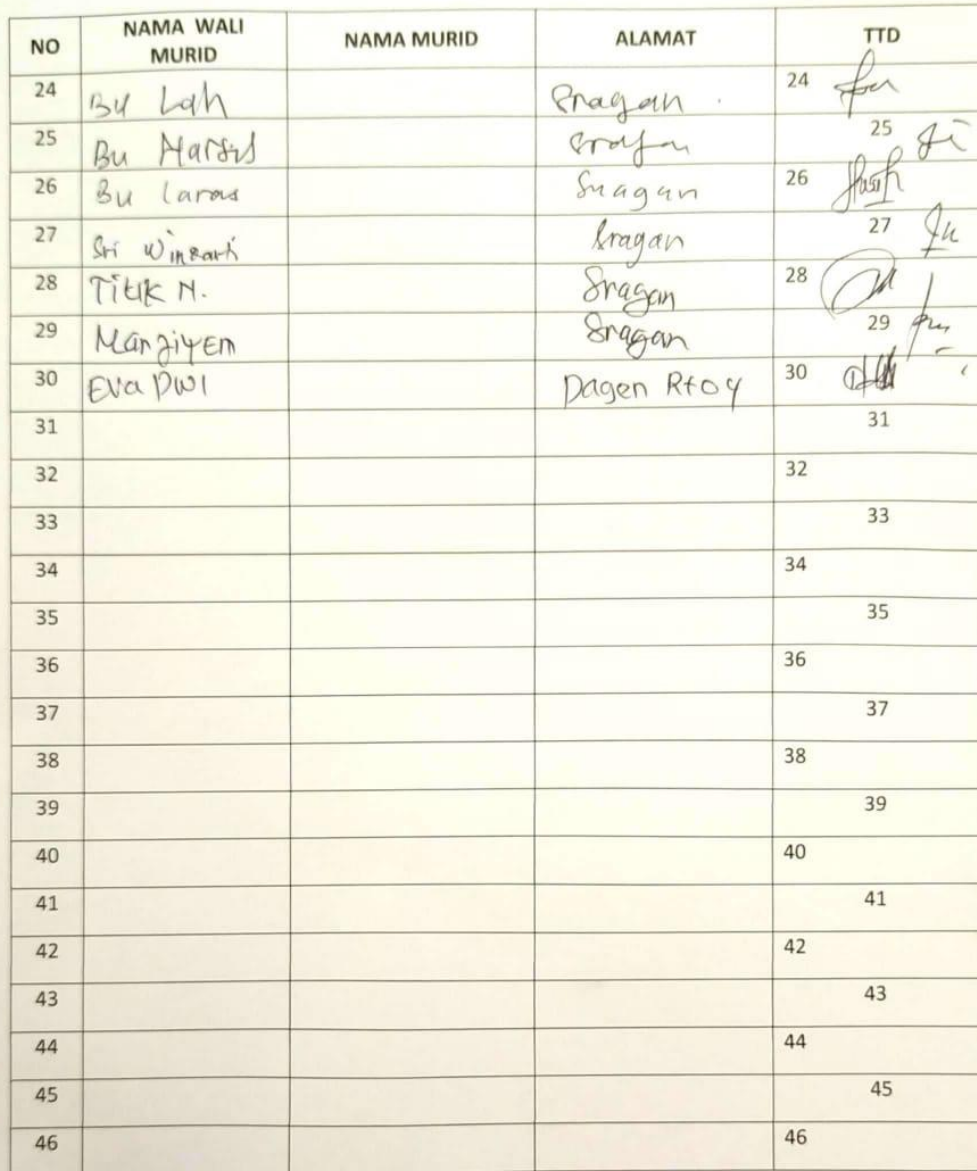 NO NAMA WALI MURID NAMA MURID ALAMAT TTD
24 Bu Lah Sragan 24
25 Bu 25
26 Bu Laras Sragan 26
27 Sri Winsarti Sragan 27
28 Titik N. Sragan 28
29 Marziyem Sragan 29
30 Eva DWI Dagen Rt 04 30
31 31
32 32
33 33
34 34
35 35
36 36
37 37
38 38
39 39
40 40
41 41
42 42
43 43
44 44
45 45
46 46